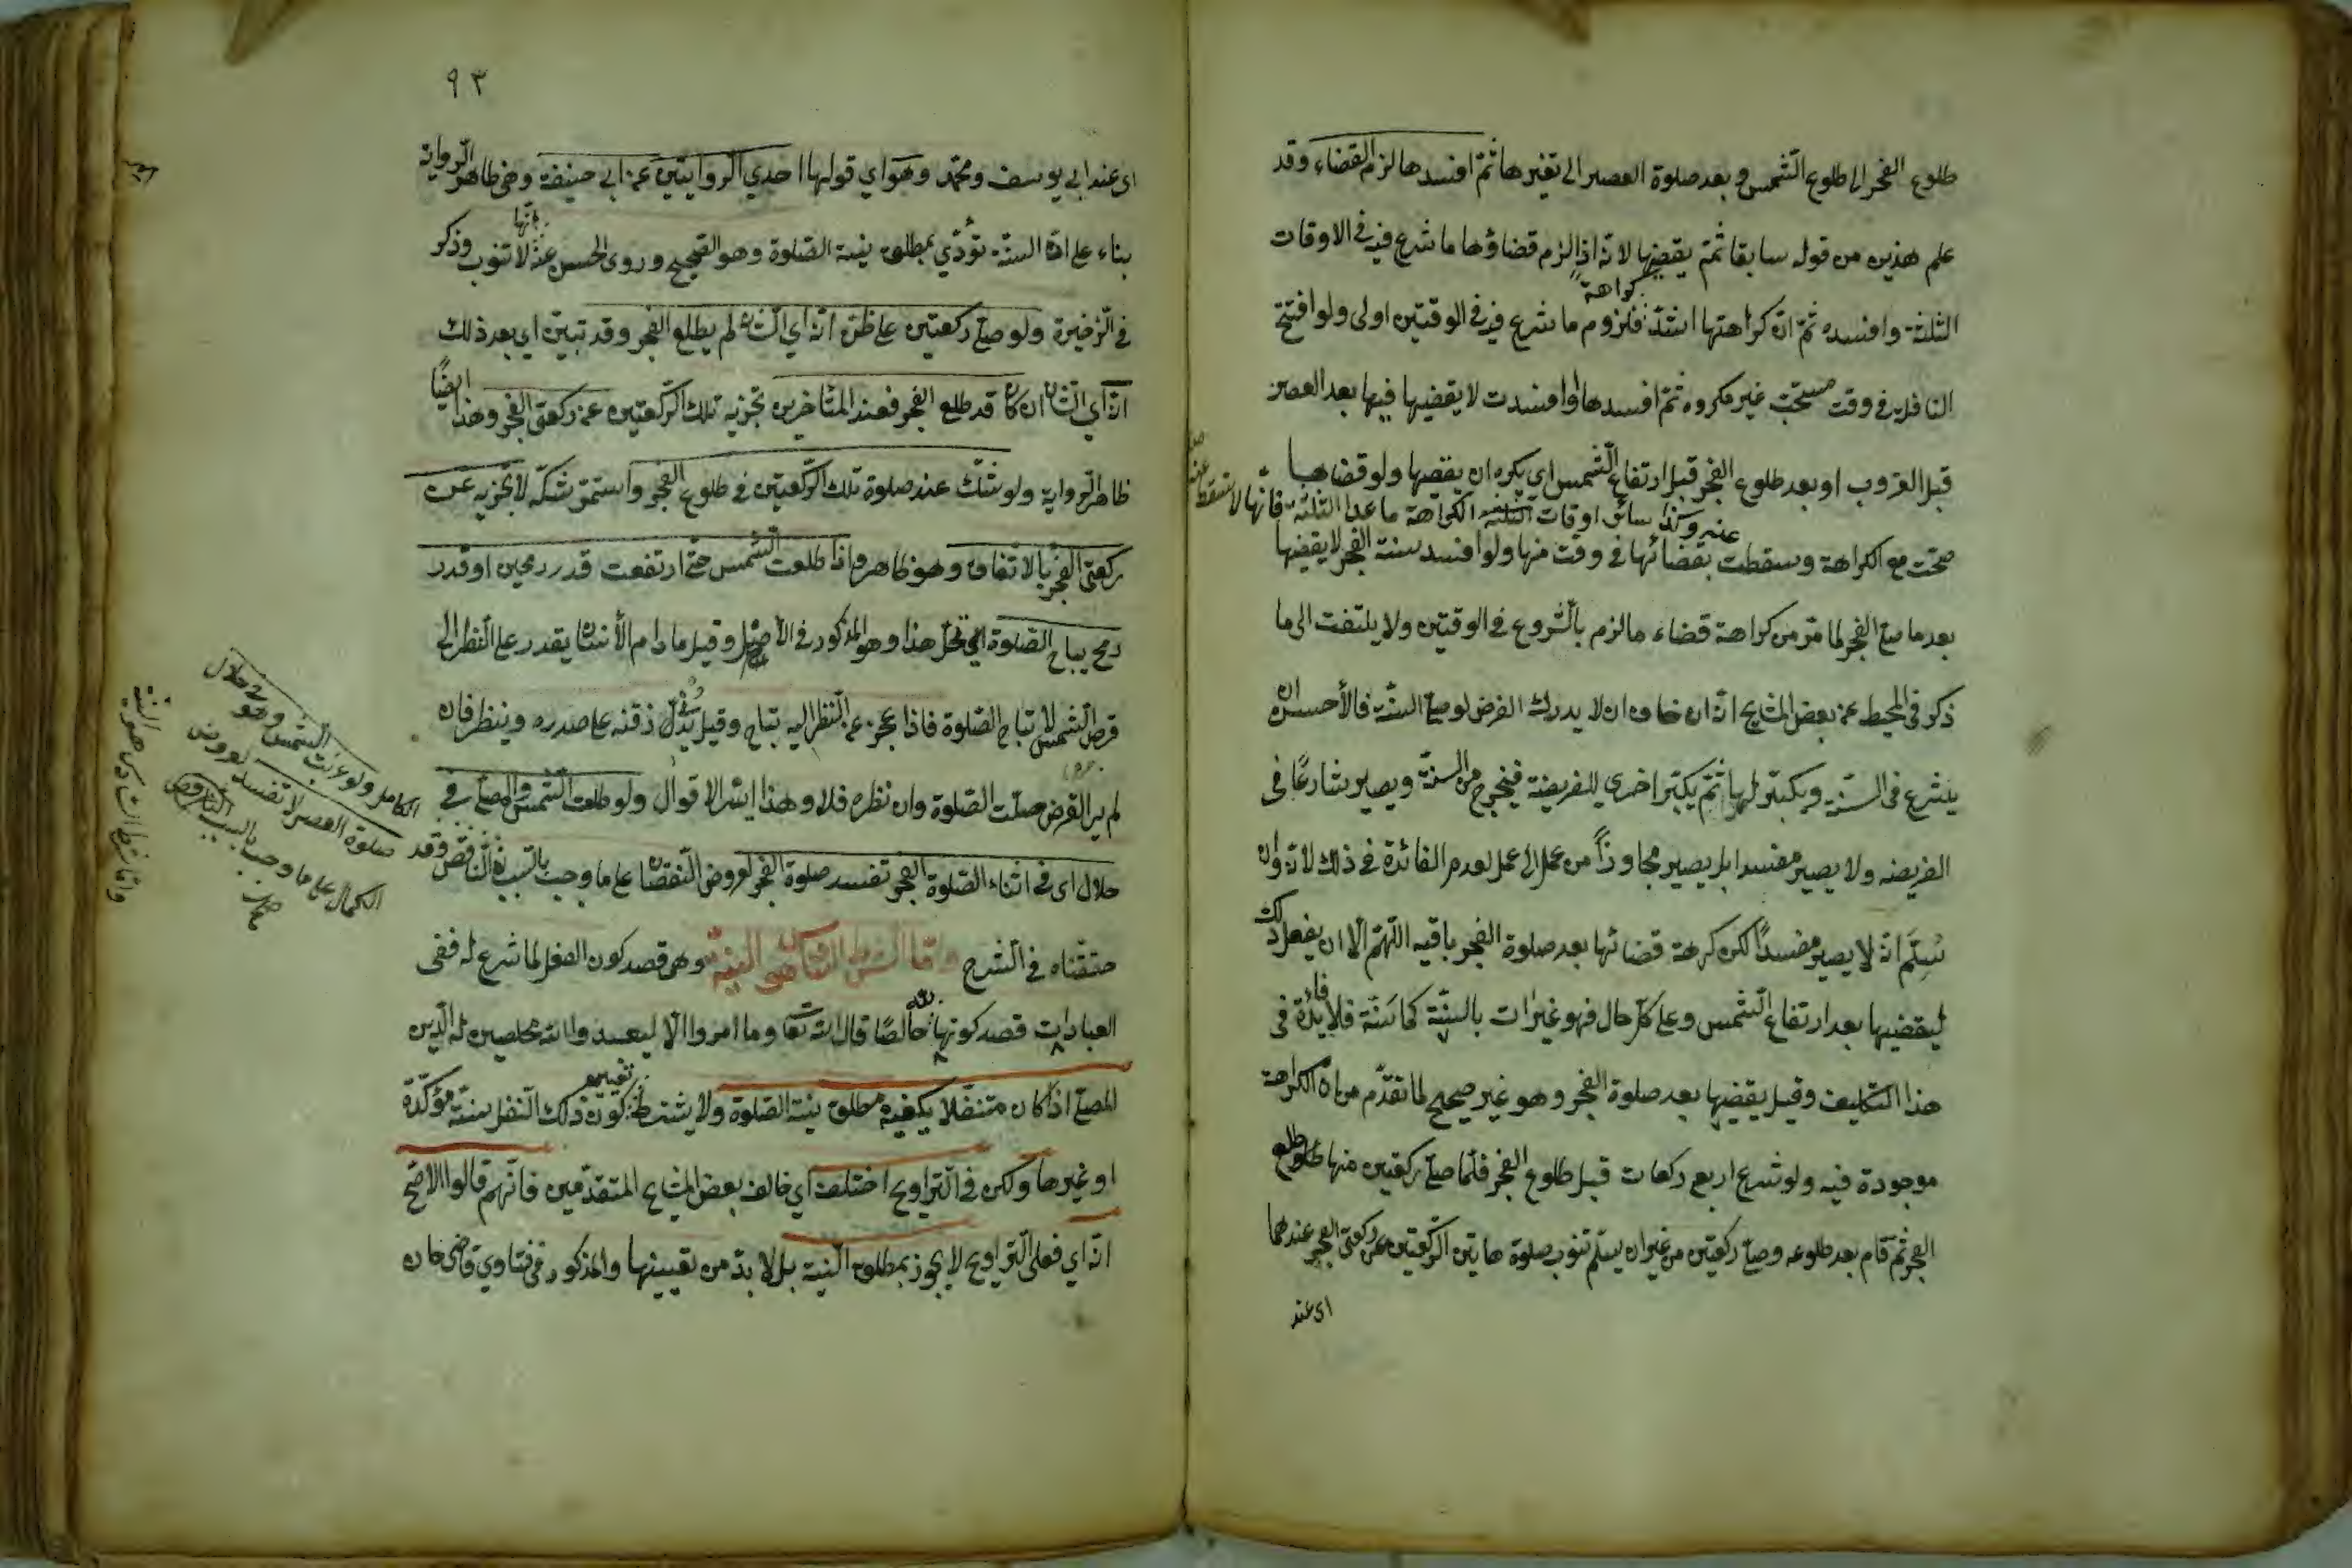 طلوع الفجر الى طلوع الشمس وبعد صلوة العصر الى تغيرها ثم افسدها لزم القضاء وقد
علم هذين من قوله سابقا ثم يقضيها لانه اذا لزم قضاؤها ما شرع فيه في الاوقات
الثلثة وافسده ثم ان كراهتها اشد كراهة فلزوم ما شرع فيه في الوقتين اولى ولو افتتح
النافلة في وقت مستحب غير مكروه ثم افسدها او افسدت لا يقضيها فيها بعد العصر
قبل الغروب او بعد طلوع الفجر قبل ارتفاع الشمس اي يكره ان يقضيها ولو قضاها
وكذا سائر اوقات الكراهة ما عدا الثلثة فانها لا تسقط عنه
صحت مع الكراهة وسقطت بقضائها في وقت منها ولو افسد سنة الفجر لا يقضيها
بعد ما صلى الفجر لما مر من كراهة قضاء ما لزم بالشروع في الوقتين ولا يلتفت الى ما
ذكر في المحيط عن بعض المشايخ انه ان خاف ان لا يدرك الفرض لو صلى السنة فالأحسن ان
يشرع في السنة ويكبر لها ثم يكبر اخرى للفريضة فيخرج من السنة ويصير شارعًا في
الفريضه ولا يصير مفسدا بل يصير مجاوزاً من عمل الى عمل لعدم الفائدة في ذلك لانه وان
سُلِّم انه لا يصير مفسدًا لكن كرهة قضائها بعد صلوة الفجر باقيه اللّهم الا ان يفعل ذلك
ليقضيها بعد ارتفاع الشمس وعلى كل حال فهو غير ات بالسنة كما سنّة فلا فائدة في
هذا التكليف وقيل يقضيها بعد صلوة الفجر وهو غير صحيح لما تقدّم من ان الكراهة
موجودة فيه ولو شرع اربع ركعات قبل طلوع الفجر فلما صلى ركعتين منها طلع
الفجر ثم قام بعد طلوعه وصلى ركعتين من غير ان يسلم تنوب صلوة هاتين الركعتين عن ركعتي الفجر عندهما
اى عند
٩٣
اى عند ابي يوسف ومحمّد وهو اي قولهما احدي الروايتين عن ابي حنيفة وهي ظاهر الرواية
بناء على ان السنّة تؤدّي بمطلق نية الصّلوة وهو الصّحيح وروى الحسن عنه انّها لا تنوب وذكر
في الذخيرة ولو صلى ركعتين على ظن انه اي الشان لم يطلع الفجر وقد تبيّن اي بعد ذلك
انه اي الشان ان كان قد طلع الفجر فعند المتأخرين تجزيه تلك الركعتين عن ركعتي الفجر وهذا ايضًا
ظاهر الرواية ولو شكّ عند صلوة تلك الركعتين في طلوع الفجر واستمر شكّه لا تجزيه عن
ركعتي الفجر بالاتفاق وهو ظاهر واذا طلعت الشمس حتى ارتفعت قدر رمحين او قدر
رمح يباح الصّلوة اي تحل هذا وهو المذكور في الأصل وقيل ما دام الأنسان يقدر على النظر الى
قرص الشمس لا تباح الصّلوة فاذا عجز عن النظر اليه تباح وقيل يدلّ ذقنه على صدره وينظر فان
لم ير القرض حلّت الصّلوة وان نظره فلا وهذا ايسر الاقوال ولو طلعت الشمس والمصلى في
خلال اى في اثناء الصّلوة الفجر تفسد صلوة الفجر لعروض النقصان على ما وجب بالسبب الناقص وقد
حققناه في الشرح واما الشرط السادس فهو النية وهي قصد كون الفعل لما شرع له ففى
العبادات قصد كونها لله خالصًا قال الله تعا وما امروا الا ليعبدوا الله مخلصين له الدّين
المصلى اذا كان متنفّلا يكفيه مطلق نيّة الصّلوة ولا يشترط تعيين كون ذلك النفل سنة مؤكّدة
او غيرها ولكن في التراويح اختلف اي خالف بعض المشايخ المتقدّمين فانّهم قالوا الاصحّ
انه اي فعل التراويح لا يجوز بمطلق النية بل لا بدّ من تعيينها والمذكور في فتاوي قاضى خان
الكامل ولو غربت الشمس وهو في خلال
صلوة العصر لا تفسد لعروض
الكمال على ما وجب بالسبب الناقص
صح
واما شرط السادس هو النية